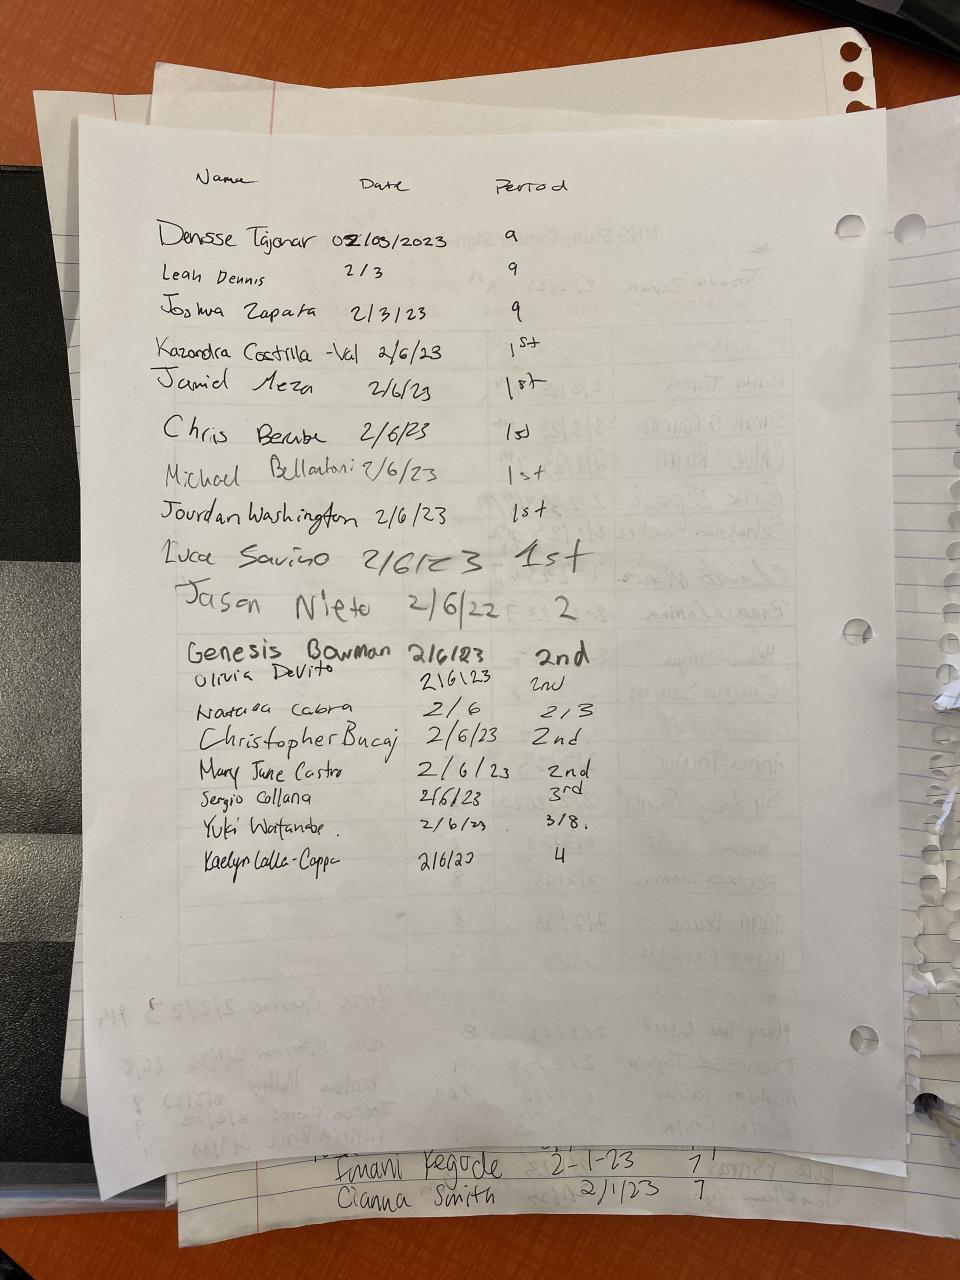 Name Date Period
Denisse Tajonar 02/03/2023 9
Leah Dennis 2/3 9
Joshua Zapata 2/3/23 9
Kazandra Castilla-Val 2/6/23 1st
Jamiel Meza 2/6/23 1st
Chris Berube 2/6/23 1st
Michael 2/6/23 1st
Jourdan Washington 2/6/23 1st
Luca Savino 2/6/23 1st
Jason Nieto 2/6/22 2
Genesis Bowman 2/6/23 2nd
Olivia DeVito 2/6/23 2nd
Cabra 2/6 2/3
Christopher Bucaj 2/6/23 2nd
Mary Jane Castro 2/6/23 2nd
Sergio Collana 2/6/23 3rd
Yuki Watanabe. 2/6/23. 3/8.
Kaelyn Lalla-Coppa 2/6/23 4
Imani Kegode 2-1-23 7
Cianna Smith 2/1/23 7